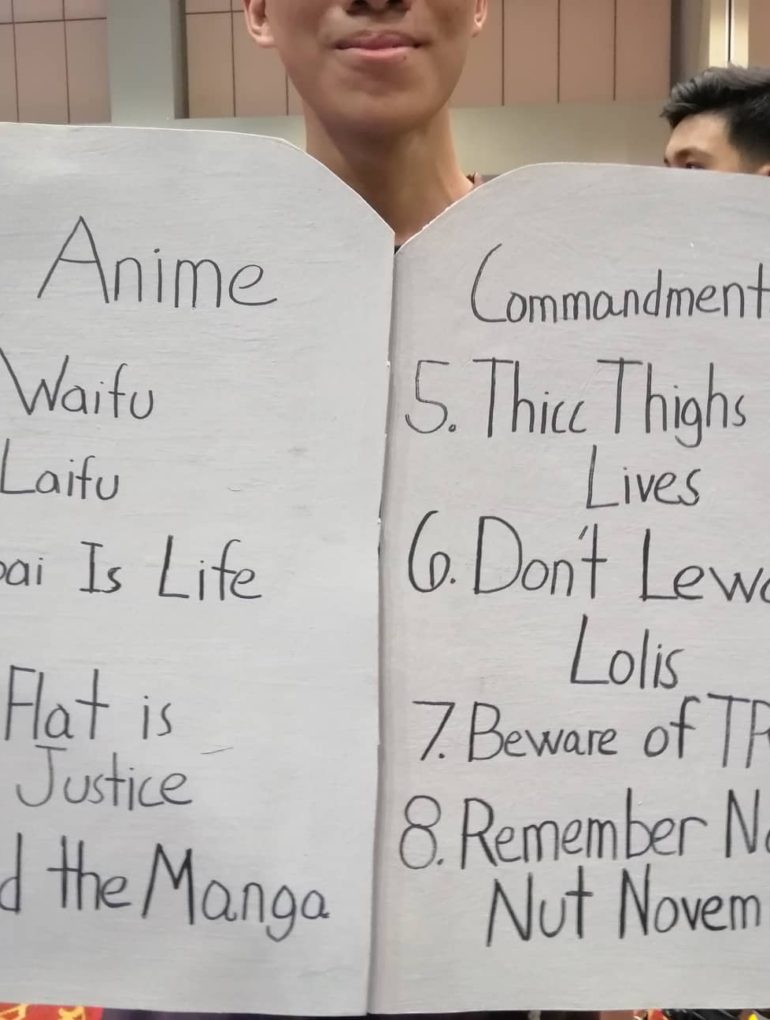 Anime
Waifu
Laifu
Is Life
Flat is
Justice
the Manga
Commandment
5. Thicc Thighs
Lives
6. Don't
Lolis
7. Beware of
8. Remember
Nut Novem